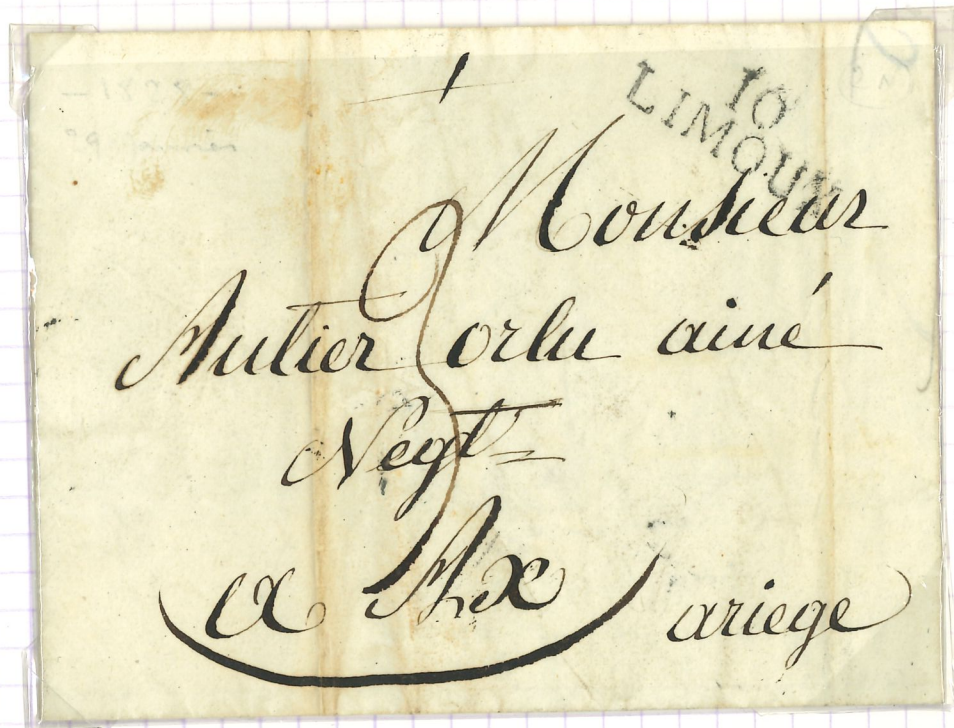 10
LIMOUX
Monsieur
Autier orlu ainé
Negt
a Ax
ariege
3